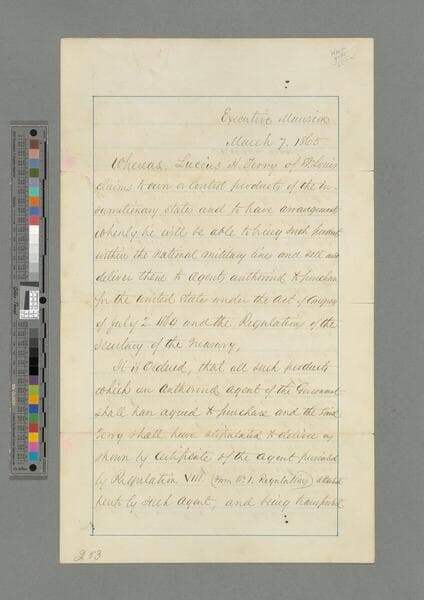 Executive Mansion
March 7, 1865
Whereas, Lucius H. Terry of St Louis
claims to own or control products of the in-
surrectionary States and to have arrangements
whereby he will be able to bring such products
within the national military lines and sell and
deliver them to agents authorized to purchase
for the United States under the Act of Congress
of July 2 1864 and the Regulations of the
Secretary of the Treasury,
It is Ordered, that all such products
which an authorized agent of the Government
shall have agreed to purchase and the said
Terry shall have stipulated to deliver as
shown by Certificate of the agent
by Regulation VIII (Form No 1. Regulations)
by such Agent, and being transported
253